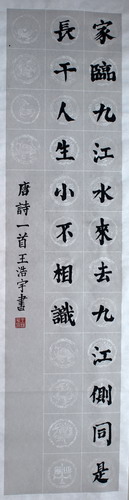 家臨九江水來去九江側同是
長干人生小不相識
唐詩一首王浩宇書